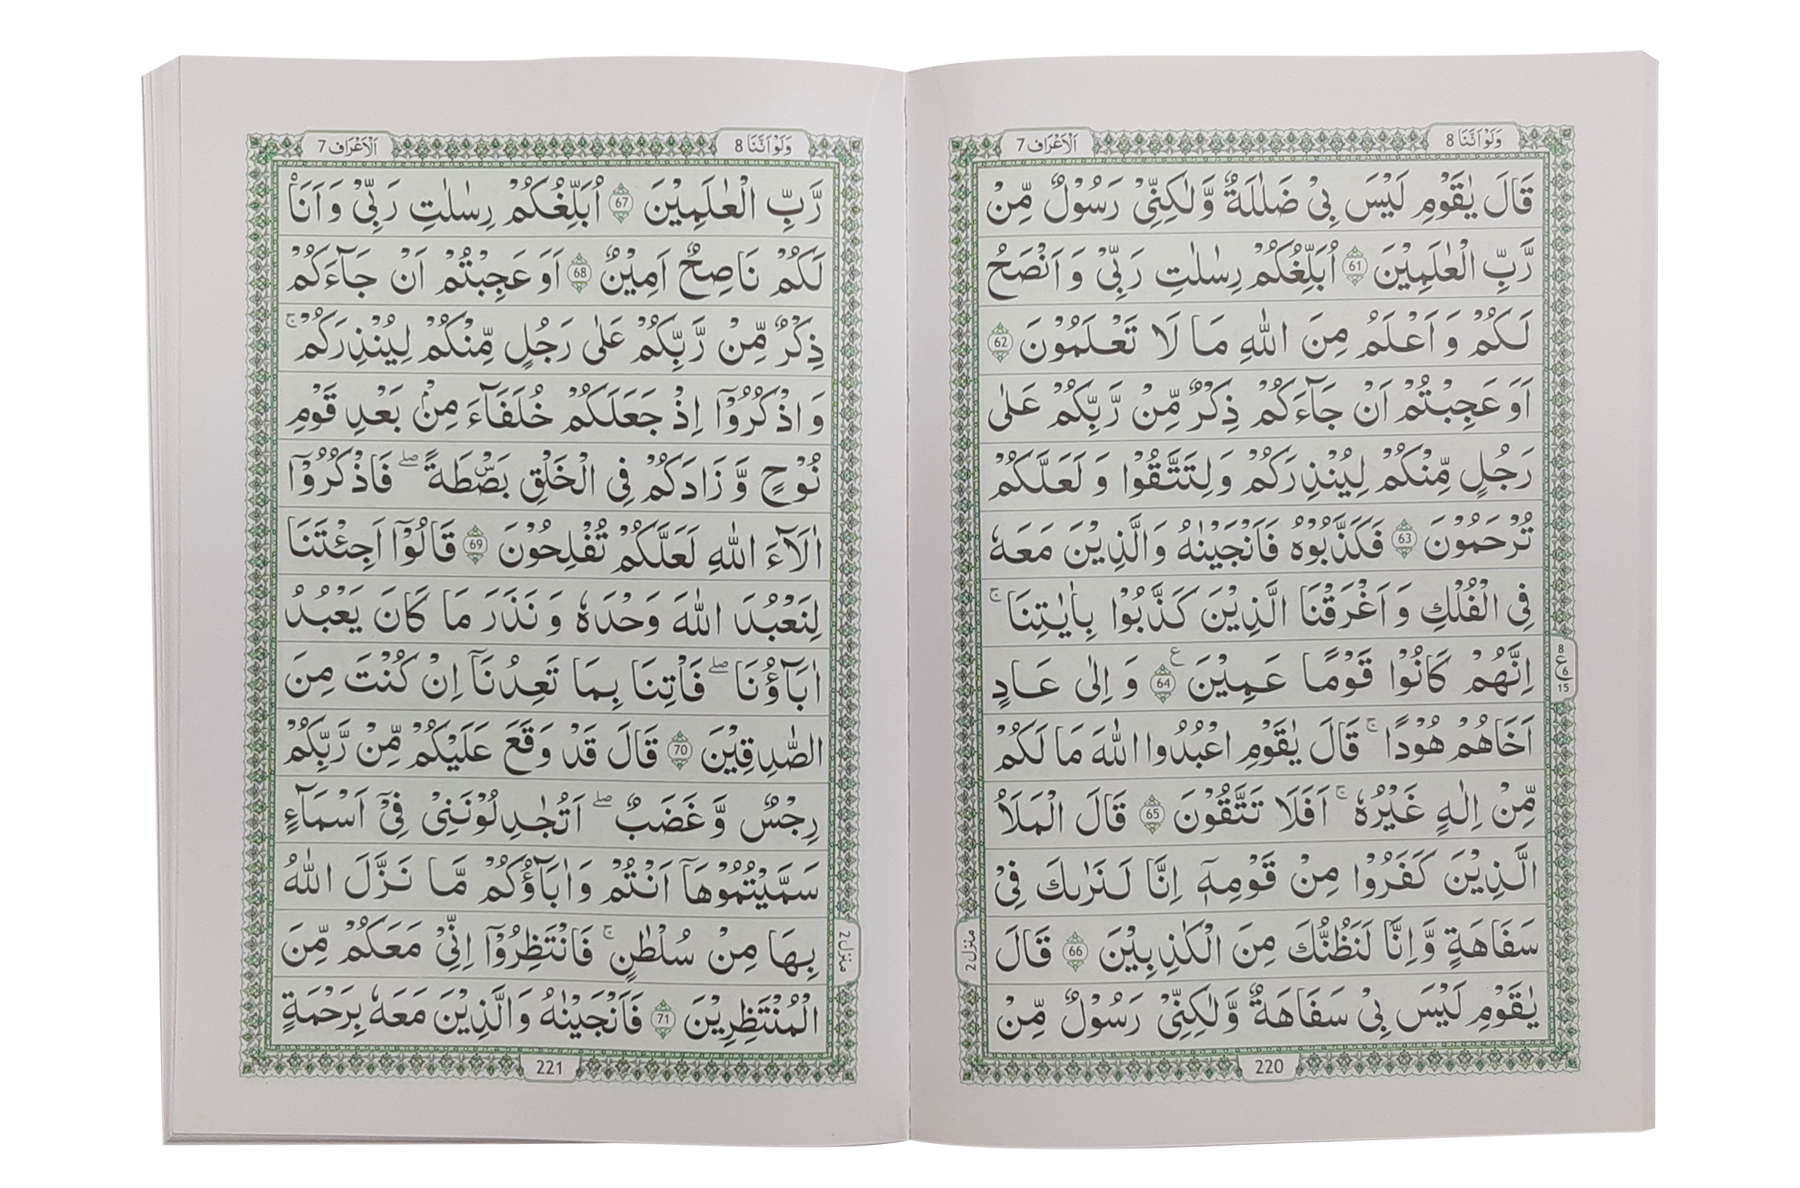 وَلَوْ اَنَّنَا 8
اَلْاَعْرَاف 7
قَالَ يٰقَوْمِ لَيْسَ بِىْ ضَلٰلَةٌ وَّلٰكِنِّىْ رَسُوْلٌ مِّنْ
رَّبِّ الْعٰلَمِيْنَ 61 اُبَلِّغُكُمْ رِسٰلٰتِ رَبِّىْ وَ اَنْصَحُ
لَكُمْ وَ اَعْلَمُ مِنَ اللّٰهِ مَا لَا تَعْلَمُوْنَ 62
اَوَ عَجِبْتُمْ اَنْ جَآءَكُمْ ذِكْرٌ مِّنْ رَّبِّكُمْ عَلٰى
رَجُلٍ مِّنْكُمْ لِيُنْذِرَكُمْ وَلِتَتَّقُوْا وَ لَعَلَّكُمْ
تُرْحَمُوْنَ 63 فَكَذَّبُوْهُ فَاَنْجَيْنٰهُ وَالَّذِيْنَ مَعَهٗ
فِى الْفُلْكِ وَ اَغْرَقْنَا الَّذِيْنَ كَذَّبُوْا بِاٰيٰتِنَا ۚ
اِنَّهُمْ كَانُوْا قَوْمًا عَمِيْنَ 64 ع وَ اِلٰى عَادٍ
8 ع 6 15
اَخَاهُمْ هُوْدًا ۚ قَالَ يٰقَوْمِ اعْبُدُوا اللّٰهَ مَا لَكُمْ
مِّنْ اِلٰهٍ غَيْرُهٗ ۚ اَفَلَا تَتَّقُوْنَ 65 قَالَ الْمَلَاُ
الَّذِيْنَ كَفَرُوْا مِنْ قَوْمِهٖٓ اِنَّا لَنَرٰىكَ فِىْ
سَفَاهَةٍ وَّاِنَّا لَنَظُنُّكَ مِنَ الْكٰذِبِيْنَ 66 قَالَ
منزل 2
يٰقَوْمِ لَيْسَ بِىْ سَفَاهَةٌ وَّلٰكِنِّىْ رَسُوْلٌ مِّنْ
220
وَلَوْ اَنَّنَا 8
اَلْاَعْرَاف 7
رَّبِّ الْعٰلَمِيْنَ 67 اُبَلِّغُكُمْ رِسٰلٰتِ رَبِّىْ وَ اَنَا۠
لَكُمْ نَاصِحٌ اَمِيْنٌ 68 اَوَ عَجِبْتُمْ اَنْ جَآءَكُمْ
ذِكْرٌ مِّنْ رَّبِّكُمْ عَلٰى رَجُلٍ مِّنْكُمْ لِيُنْذِرَكُمْ ۚ
وَ اذْكُرُوْٓا اِذْ جَعَلَكُمْ خُلَفَآءَ مِنْۢ بَعْدِ قَوْمِ
نُوْحٍ وَّ زَادَكُمْ فِى الْخَلْقِ بَصْۜطَةً ۖ فَاذْكُرُوْٓا
اٰلَآءَ اللّٰهِ لَعَلَّكُمْ تُفْلِحُوْنَ 69 قَالُوْٓا اَجِئْتَنَا
لِنَعْبُدَ اللّٰهَ وَحْدَهٗ وَ نَذَرَ مَا كَانَ يَعْبُدُ
اٰبَآؤُنَا ۖ فَاْتِنَا بِمَا تَعِدُنَآ اِنْ كُنْتَ مِنَ
الصّٰدِقِيْنَ 70 قَالَ قَدْ وَقَعَ عَلَيْكُمْ مِّنْ رَّبِّكُمْ
رِجْسٌ وَّ غَضَبٌ ۖ اَتُجَادِلُوْنَنِىْ فِىْٓ اَسْمَآءٍ
سَمَّيْتُمُوْهَآ اَنْتُمْ وَ اٰبَآؤُكُمْ مَّا نَزَّلَ اللّٰهُ
بِهَا مِنْ سُلْطٰنٍ ۚ فَانْتَظِرُوْٓا اِنِّىْ مَعَكُمْ مِّنَ
منزل 2
الْمُنْتَظِرِيْنَ 71 فَاَنْجَيْنٰهُ وَالَّذِيْنَ مَعَهٗ بِرَحْمَةٍ
221